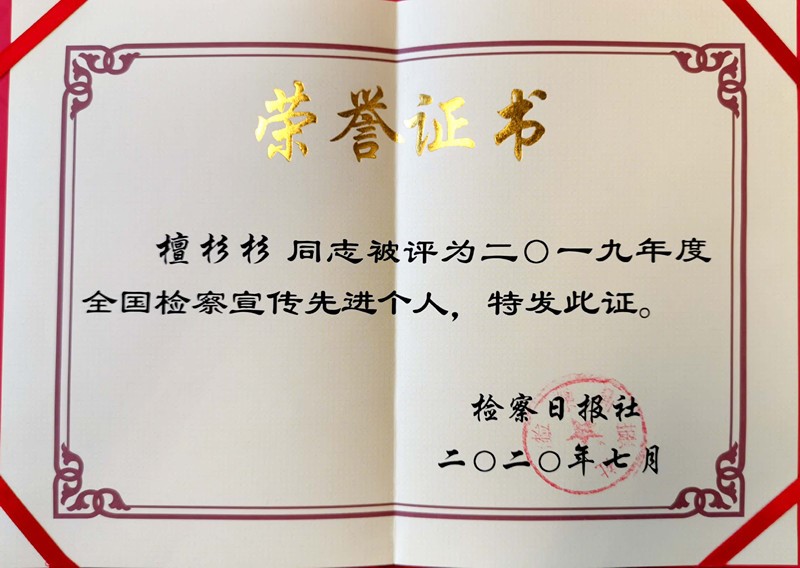 荣誉证书
檀杉杉 同志被评为二〇一九年度
全国检察宣传先进个人，特发此证。
检察日报社
二〇二〇年七月